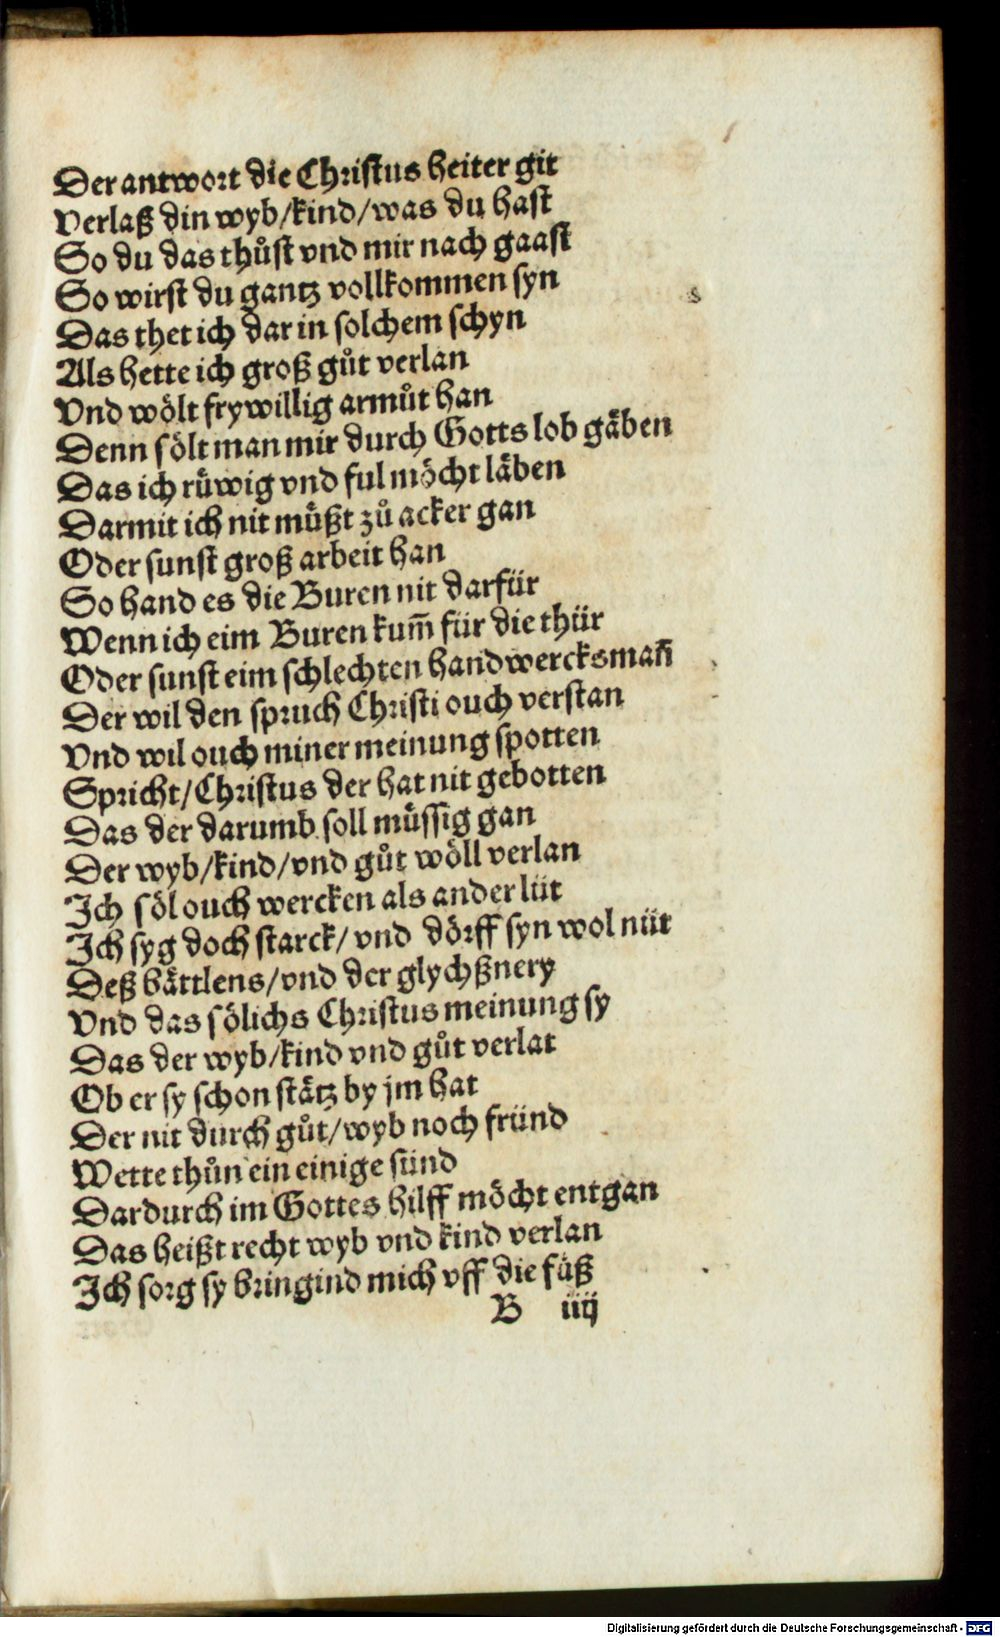 Der antwort die Christus heiter git
Verlaß din wyb/kind/was du hast
So du das thůst vnd mir nach gaast
So wirst du gantz vollkommen syn
Das thet ich dar in solchem schyn
Als hette ich groß gůt verlan
Vnd wölt frywillig armůt han
Denn sölt man mir durch Gotts lob gäben
Das ich rüwig vnd ful möcht läben
Darmit ich nit müßt zů acker gan
Oder sunst groß arbeit han
So hand es die Buren nit darfür
Wenn ich eim Buren kum̃ für die thür
Oder sunst eim schlechten handwercksmañ
Der wil den spruch Christi ouch verstan
Vnd wil ouch miner meinung spotten
Spricht/Christus der hat nit gebotten
Das der darumb soll müssig gan
Der wyb/kind/vnd gůt wöll verlan
Ich söl ouch wercken als ander lüt
Ich syg doch starck/vnd dörff syn wol nüt
Deß bättlens/vnd der glychßnery
Vnd das sölichs Christus meinung sy
Das der wyb/kind vnd gůt verlat
Ob er sy schon stätz by jm hat
Der nit durch gůt/wyb noch fründ
Wette thůn ein einige sünd
Dardurch im Gottes hilff möcht entgan
Das heißt recht wyb vnd kind verlan
Ich sorg sy bringind mich vff die füß
B iiij
Digitalisierung gefördert durch die Deutsche Forschungsgemeinschaft - DFG